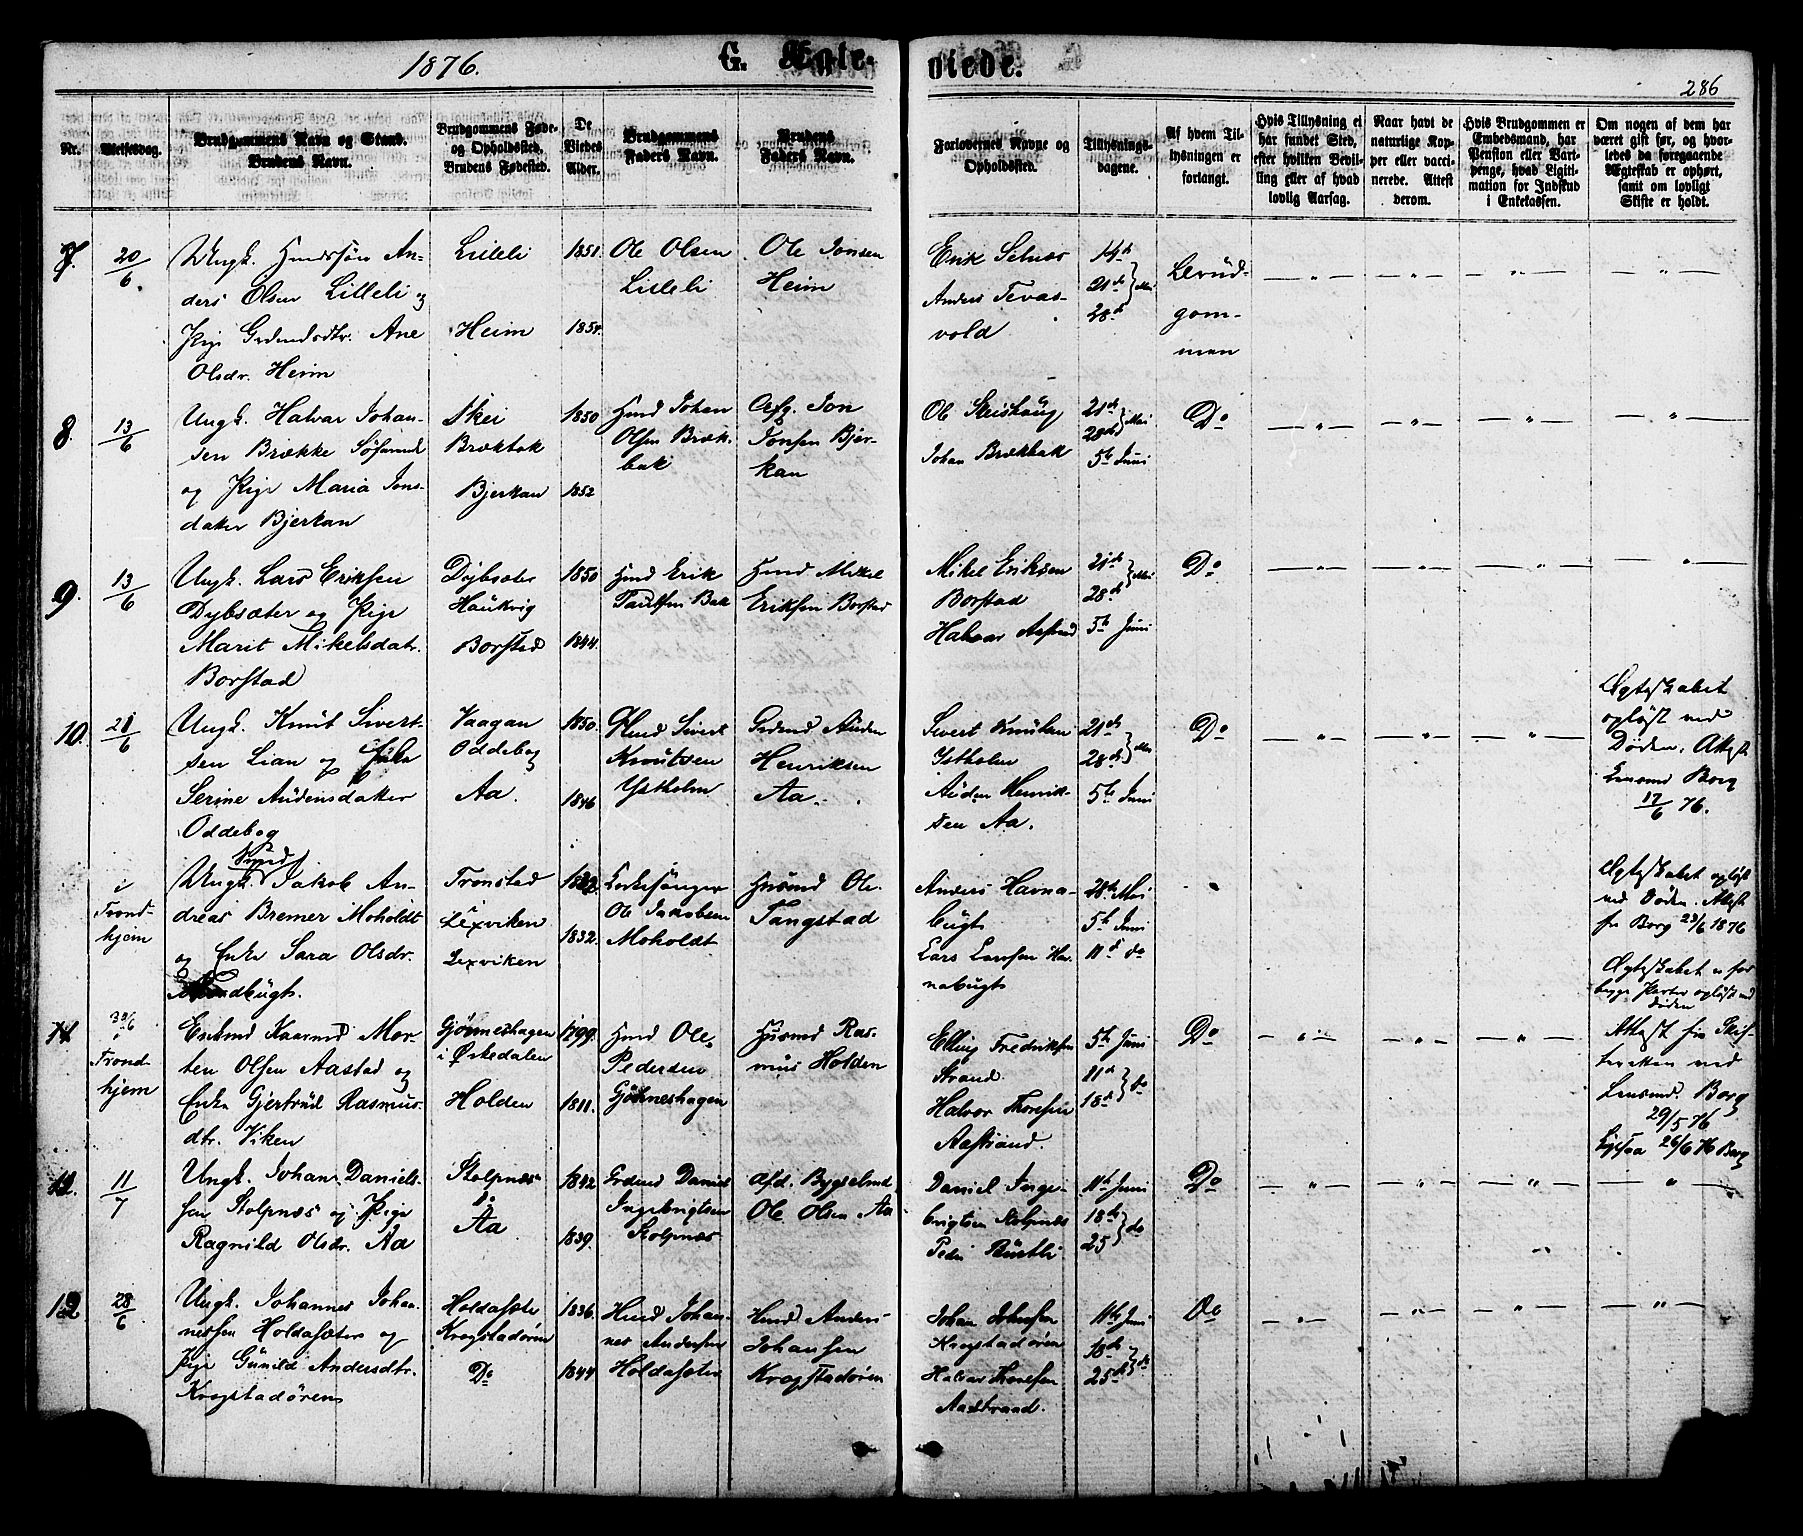 1876.
G. Ægte-
viede.
286
Nr.
Vielsesdag.
Brudgommens Navn og Stand.
Brudens Navn.
Brudgommens Føde-
og Opholdssted.
Brudens Fødested.
De
Viedes
Alder.
Brudgommens
Faders Navn.
Brudens
Faders Navn.
Forlovernes Navne og
Opholdssted.
Tillysnings-
dagene.
Af hvem Til-
lysningen er
forlangt.
Hvis Tillysning ei
har fundet Sted,
efter hvilken Bevil-
ling eller af hvad
lovlig Aarsag.
Naar havt de
naturlige Kop-
per eller vacci-
nerede. Attest
derom.
Hvis Brudgommen er
Embedsmand, har
Pension eller Vart-
penge, hvad Ligiti-
mation for Indskud
i Enkekassen.
Om nogen af dem har
været gift før, og hvor-
ledes da foregaaende
Ægteskab er ophørt,
samt om lovligt
Skifte er holdt.
7.
20/6
Ungk. An-
ders Olsen Lilleli og
Pige Ane
Olsdr. Heim
Lilleli
Heim
1851.
1851.
Ole Olsen
Lilleli
Ole Jonsen
Heim
Erik Selnæs
Anders Tevas-
vold
14de
21de
28de
Mai
gom-
men
8.
13/6
Ungk. Halvar Johan-
sen Brække
og Pige Maria Jons-
dater Bjerkan
Skei
Brækbak
Bjerkan
1850
1852
Hmd Johan
Olsen Bræk-
bak
Jon
Jonsen Bjer-
kan
Ole
Johan Brækbak
21de
28de
Mai
5te Juni
Do
9.
13/6
Ungk. Lars Eriksen
Dybsæter og Pige
Marit Mikelsdatr.
Borstad
Dybsæter
Haukvig
Borstad
1850
1844.
Hmd Erik
Paulsen Bak
Hmd Mikel
Eriksen Borstad
Mikel Eriksen
Borstad
Halvar
21de
28de
Mai
5te Juni
Do
10.
21/6
Ungk. Knut Sivert-
sen Lian og
Serine Audensdater
Oddebog
Vaagan
Oddebog
Aa.
1850
1846
Hmd Sivert
Knutsen
Ystholm
Grdmd Auden
Henriksen
Aa.
Sivert Knutsen
Ystholm
Auden Henrik-
sen Aa.
21de
28de
Mai
5te Juni
Do
Ægteskabet
opløst ved
Døden. Attest
Lensmd Borg
17/6 76.
i
Trond-
hjem
Ungk. Jakob An-
dreas Bremer Moholdt
og Enke Sara Olsdr.
Tronstad
Lexviken
Lexviken
1832.
Kirkesanger
Ole Jakobsen
Moholdt
Husmd Ole
Tangstad
Anders Havna-
bugt
Lars Larsen Hav-
nabugt
28de Mai
5te Juni
11te do
Ægteskabet opløst
ved Døden. Attest
fr Borg 23/6 1876
11
30/6
i
Trond-
hjem
Enkemd Kaarmd Mor-
ten Olsen Aastad og
Enke Gjertrud Rasmus-
dtr. Viken
Gjønneshagen
i Ørkedalen
Holden
1799.
1811.
Hmd Ole
Pedersen
Gjønneshagen
Husmd Ras-
mus Holden
Elling Fredriksen
Strand.
Halvor Thoresen
Aastrand.
5te Juni
11te
18de
do
Do
Ægteskabet
begge Parter opløst ved
Døden
Attest fra Skif-
teretten ved
Lensmd. Borg
29/5 76
26/6 76 Borg
11/7
Ungk. Johan Daniels-
sen Stolpnæs og Pige
Ragnild Olsdr. Aa
Stolpnæs
Aa
1842
1839.
Grdmd Daniel
Ingebrigtsen
Stolpnæs
Ole Olsen Aa
Daniel Inge-
brigtsen Stolpnæs
Peder
11te Juni
18de
25
do
Do
12
28/6
Ungk. Johannes Johan-
nessen Holdasæter og
Pige Gunild Andersdtr.
Krogstadøren
Holdasæter
Krogstadøren
Do
1836.
1844
Hmd Johan-
nes Andersen
Holdasæter
Hmd Anders
Johansen
Krogstadøren
Johan Johnsen
Krogstadøren
Halvar Thoresen
Aastrand.
11te Juni
18de
25de
do
Do